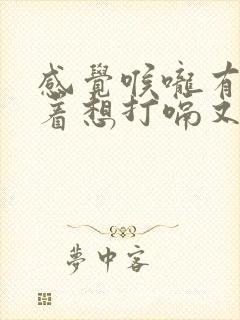 感覺喉嚨有
着想打嗝又
夢中客